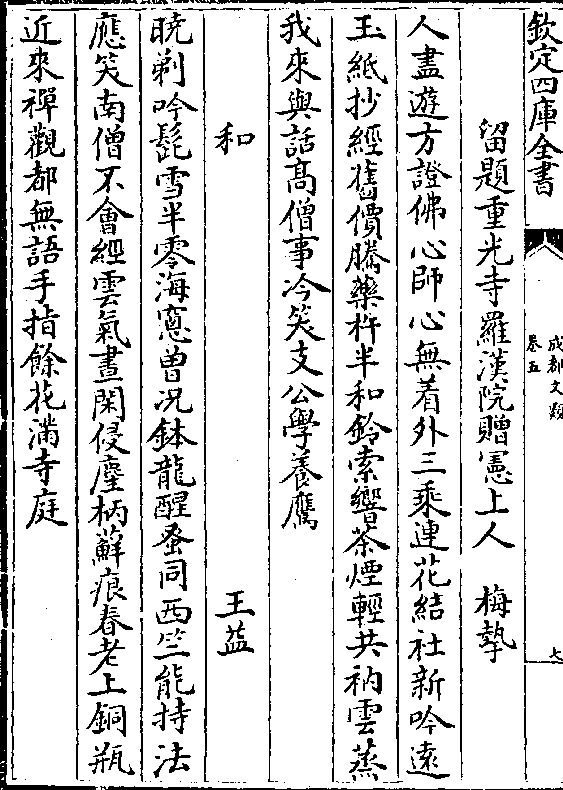 欽定四庫全書
成都文類
卷五
七
留題重光寺羅漢院贈憲上人　梅摯
人盡遊方證佛心師心無着外三乘連花結社新吟遠
玉紙抄經舊價騰藥杵半和鈴索響茶煙輕共衲雲蒸
我來與話髙僧事冷笑支公學養鷹
和　王益
晓剃吟髭雪半零海窻曽况鉢龍醒蚤同西竺能持法
應笑南僧不會經雲氣晝閑侵麈柄蘚痕春老上銅瓶
近來禪觀都無語手指餘花滿寺庭